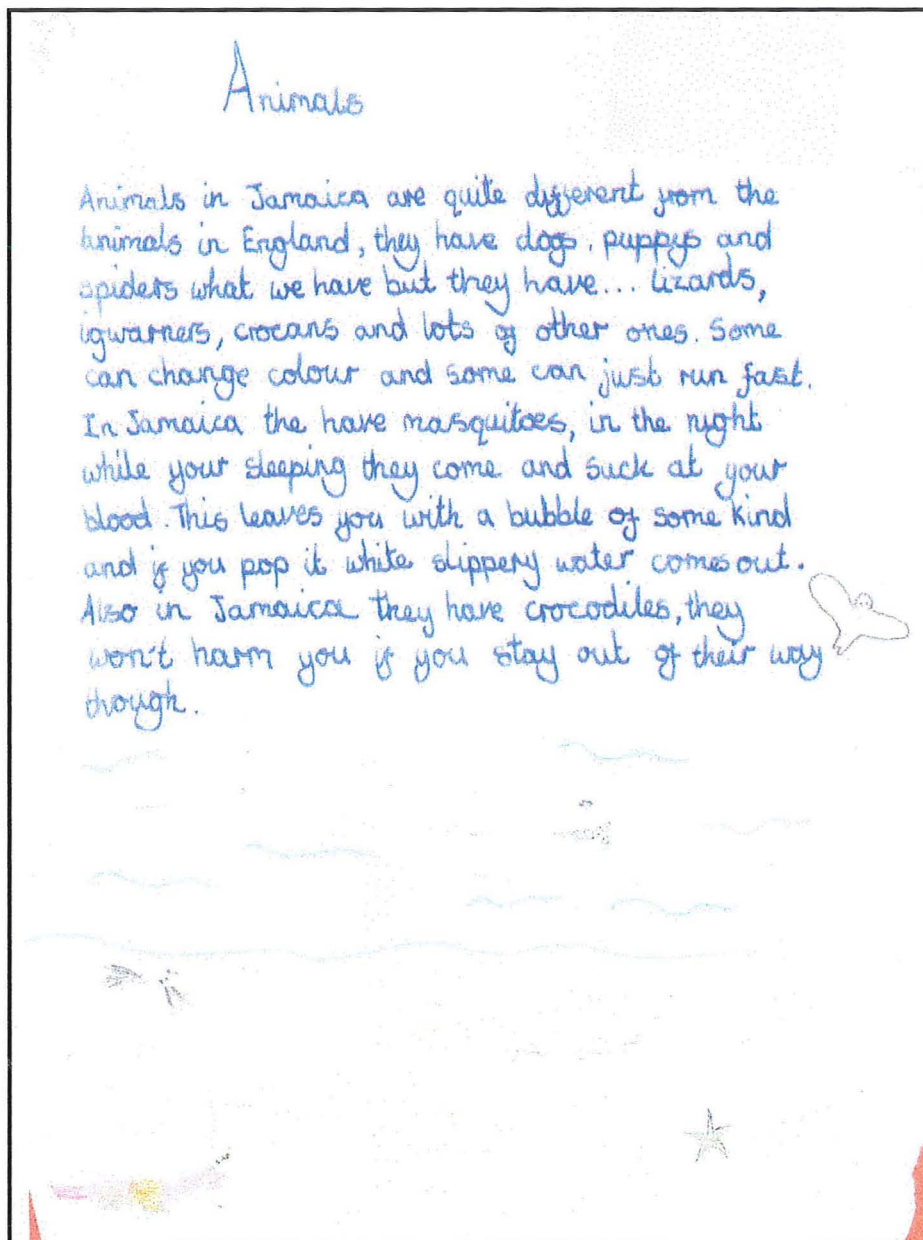 Animals
Animals in Jamaica are quite different from the
animals in England, they have dogs, puppys and
spiders what we have but they have... lizards,
igwarners, crocans and lots of other ones. Some
can change colour and some can just run fast.
In Jamaica the have masquitoes, in the night
while your sleeping they come and suck at your
blood. This leaves you with a bubble of some kind
and if you pop it white slippery water comes out.
Also in Jamaica they have crocodiles, they
won't harm you if you stay out of their way
though.